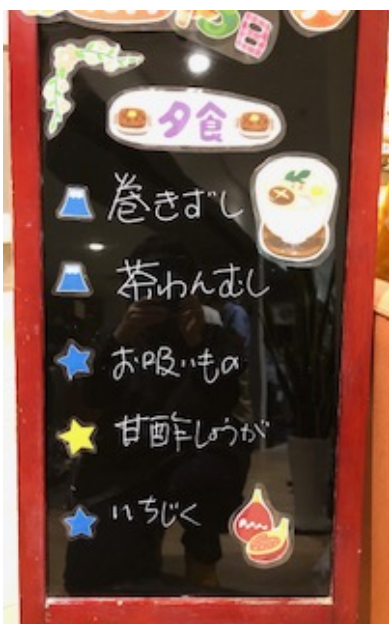 夕食
巻きずし
茶わんむし
お吸いもの
甘酢しょうが
いちじく